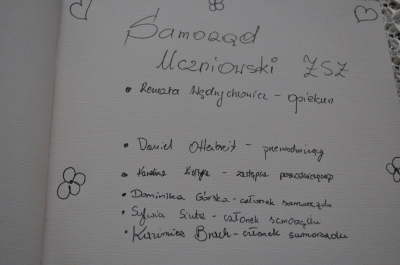 Samorząd
Uczniowski ZSZ
• Renata Wędrychowicz - opiekun
• Daniel - przewodniczący
• Karolina - zastępca przewodniczącego
• Dominika Górska - członek samorządu
• Sylwia - członek samorządu
• Kazimierz - członek samorządu